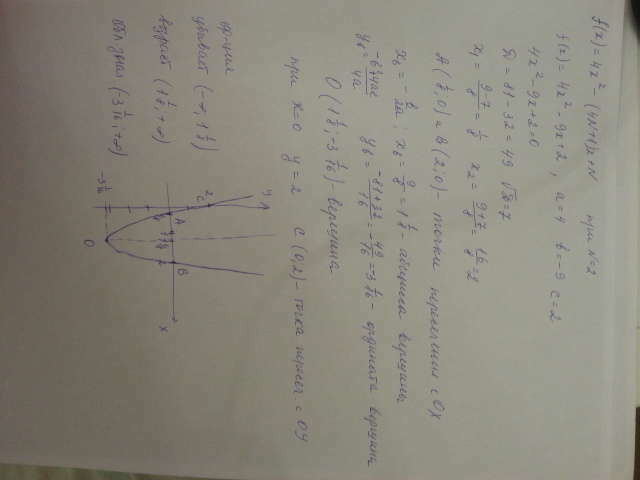 f(x) = 4x² - (4N+1)x + N при N=2
f(x) = 4x² - 9x + 2, a=4 b=-9 c=2
4x² - 9x + 2 = 0
D = 81 - 32 = 49 √D = 7
x₁ = (9-7)/8 = 1/4 x₂ = (9+7)/8 = 16/8 = 2
A(1/4; 0) и B(2; 0) - точки пересечения с OX
x₆ = -b/2a; x₆ = 9/8 = 1 1/8 - абсцисса вершины
y₆ = (-b²+4ac)/4a y₆ = (-81+32)/16 = -49/16 = -3 1/16 - ордината вершины
O(1 1/8; -3 1/16) - вершина
при x=0 y=2 C(0; 2) - точка пересеч с OY
функция
убывает (-∞; 1 1/8)
возраст (1 1/8; +∞)
обл знач (-3 1/16; +∞)
y
2
C
A
B
2
x
O
-3 1/16